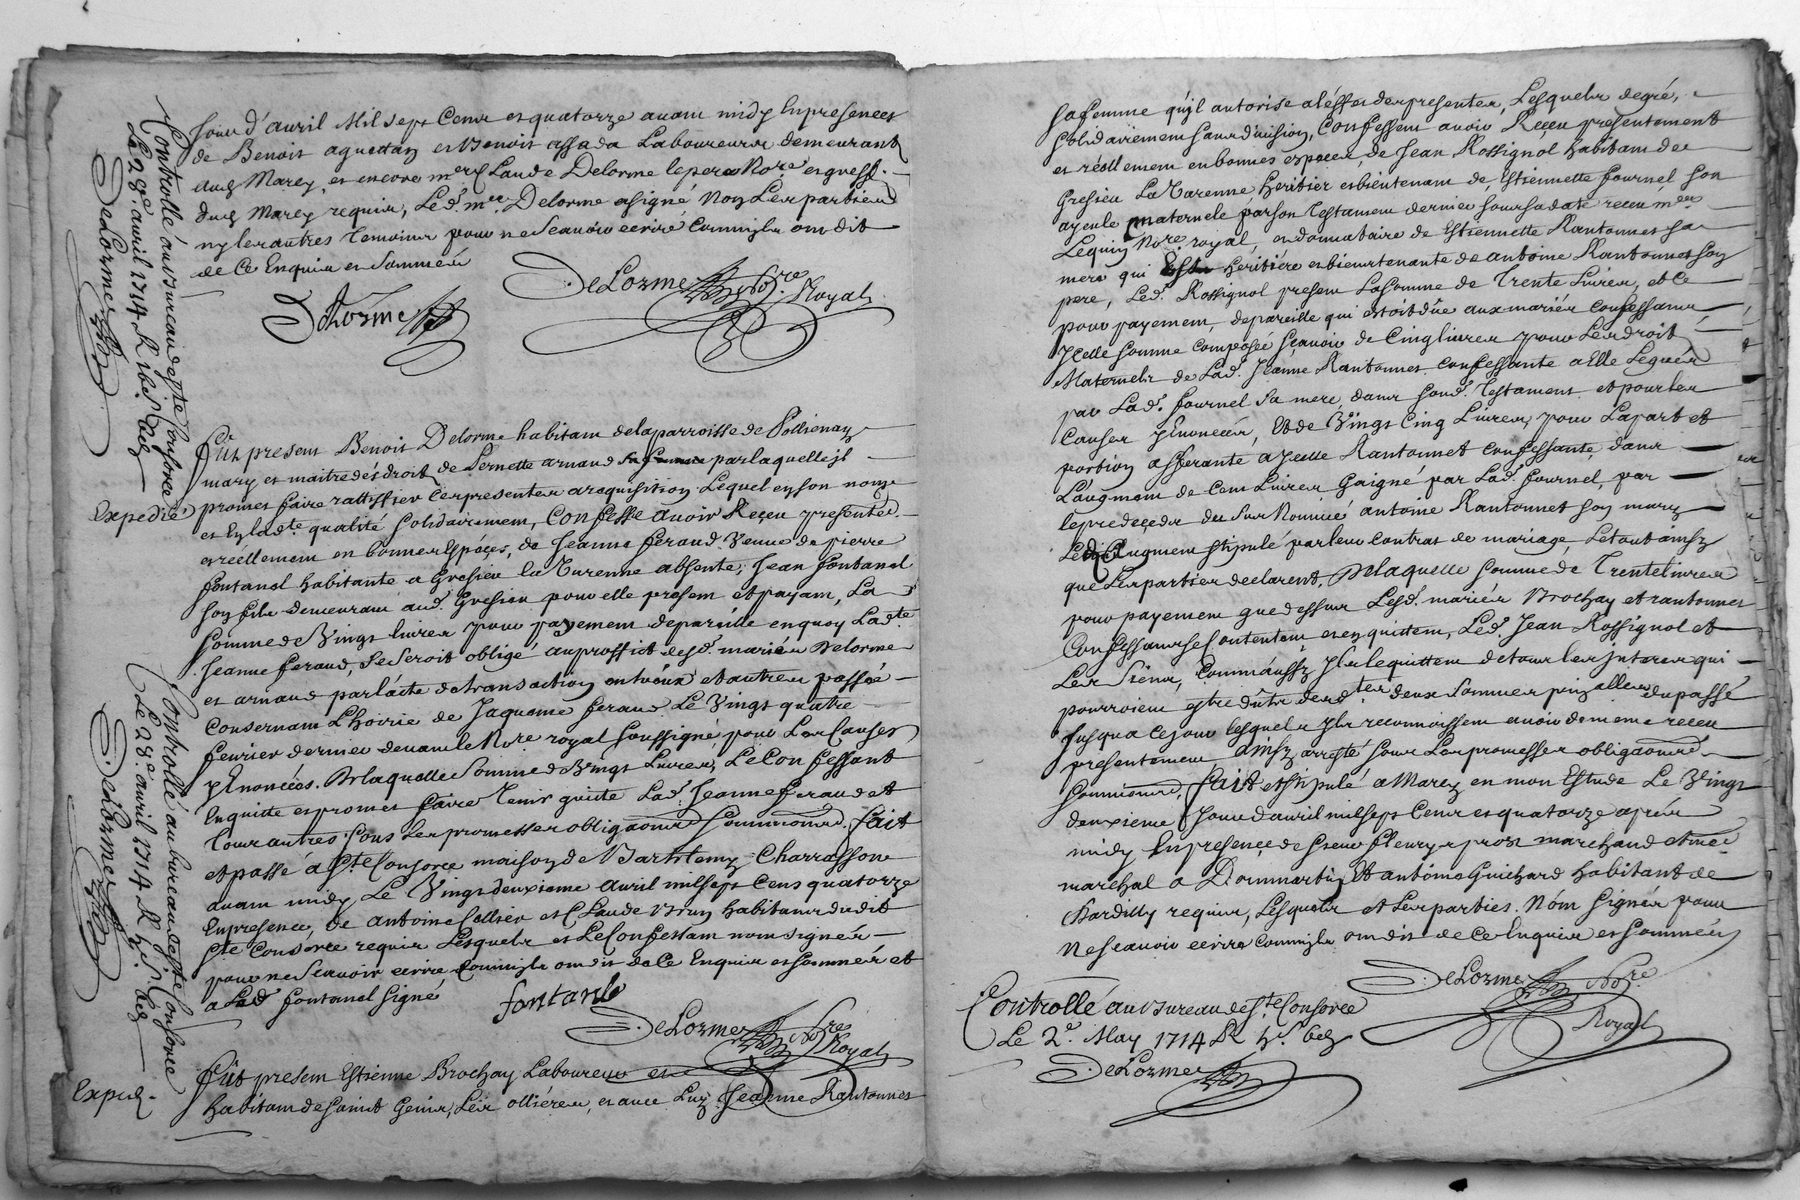 Jour d'avril Mil sept Cens et quatorze avant midy En presences
de Benoit aguettan et Benoit assada Laboureurs demeurant
aud. Marcy, et encore me Claude Delorme le pere Nore et greff.
dud. Marcy requis, Led. me Delorme a signé Non Les parties
ny les autres Temoins pour ne Scavoir ecrire Comm'ils ont dit
de Ce Enquis et Sommés
DeLorme
DeLorme Nore Royal
Controllé au Bureau de Ste Consorce
Le 28e avril 1714 R
DeLorme
fût present Benoit Delorme habitant de la parroisse de Pollienay
mary et maitre des droits de Pernette arnaud par laquelle il
Expedié
promet faire rattiffier Ces presentes a requisition Lequel en son nom
et En lade qualité Solidairement, Confesse avoir Receu presentet.
et reellement en bonnes Especes, de Jeanne feraud Veuve de pierre
fontanel habitante a Gresieu la Varenne absente, Jean fontanel
son fils demeurant aud. Gresieu pour elle present et payant, La
Somme de Vingt livres pour payement de pareille en quoy Lade
Jeanne feraud, Se Seroit obligé au proffict desd. mariés Delorme
et arnaud par l'acte de transaction entre eux et autres passée
Consernant L'hoirie de Jaqueme feraud Le Vingt quatre
fevrier dernier devant le Nore royal Soussigné pour Les Causes
y Enoncées. De laquelle Somme de Vingt Livres, Le Confessant
En quitte et promet faire Tenir quitte Lad. Jeanne feraud et
Tous autres. Sous Les promesses obligaons Soumions &. fait
et passé a Ste Consorce maison de Bartelemy Charrasson
avant midy Le Vingt deuxieme avril mil sept Cens quatorze
En presence, de antoine Cellier et Claude Brun habitans dudit
Ste Consorce requis Lesquels et Le Confessant n'ont signés
pour ne Scavoir ecrire Comm'ils ont dit de Ce Enquis et sommés et
a Led. fontanel Signé
fontanel
DeLorme Nore Royal
Controllé au bureau de Ste Consorce
Le 28e avril 1714 R
DeLorme
Exped.
fût present Estienne Brochay Laboureur
habitant de Saint Genis, Les ollieres, et avec Luy Jeanne Rantonnet
Sa femme qu'il autorise a l'effet des presentes, Lesquels de gré,
Solidairement Sans division, Confessent avoir Receu presentement
et réellement en bonnes especes de Jean Rossignol habitant de
Gresieu La Varenne heritier et bientenant de, Estiennette fournel Son
ayeule maternele par son Testament dernier Sous sa date receu me
Lequin Nore royal, et donnataire de Estiennette Rantonnet Sa
mere qui heritiére et bientenante de antoine Rantonnet son
pere, Led. Rossignol present La Somme de Trente Livres, et Ce
pour payement, de pareille qui estoit dûe aux mariés confessans
Jcelle Somme Composée Scavoir de Cinq livres pour Les droits
Maternels de Lad. Jeanne Rantonnet confessante a Elle Legués
par Lad. fournel Sa mere dans Sond. Testament et pour les
Causes y Enoncées, Et de Vingt Cinq Livres pour La part et
portion afferante a Jcelle Rantonnet confessante dans
L'augment de Cent Livres Gaigné par Lad. fournel par
le predeçedé du Sus Nommé antoine Rantonnet Son mary
Led. Augment stipulé par leur Contrat de mariage, Le tout ainsy
que Les parties declarent. De laquelle Somme de Trente livres
pour payement que dessus Lesd. mariés Brochay et rantonnet
Confessans se Contentent et en quittent, Led. Jean Rossignol et
Les Siens, Comm'aussy Jls le quittent de tous les Jnterets qui
pourroient estre dûts desdtes deux Sommes principalles du passé
Jusqu'a Ce jour lesquels Jls reconnoissent avoir de meme receu
presentement ainsy arresté Sous Les promesses obligaons
Soumions &. fait et stipulé a Marcy en mon Estude Le Vingt
deuxieme Jour d'avril mil sept Cens et quatorze apres
midy En presence de Sieur fleury marchand et me
marchal a Dommartin Et antoine Guichard habitant de
Dardilly requis, Lesquels et Les parties N'ont Signés pour
Ne Scavoir ecrire Comm'ils ont dit de Ce Enquis et Sommés
DeLorme Nore Royal
Controllé au Bureau de Ste Consorce
Le 2e May 1714 R
DeLorme